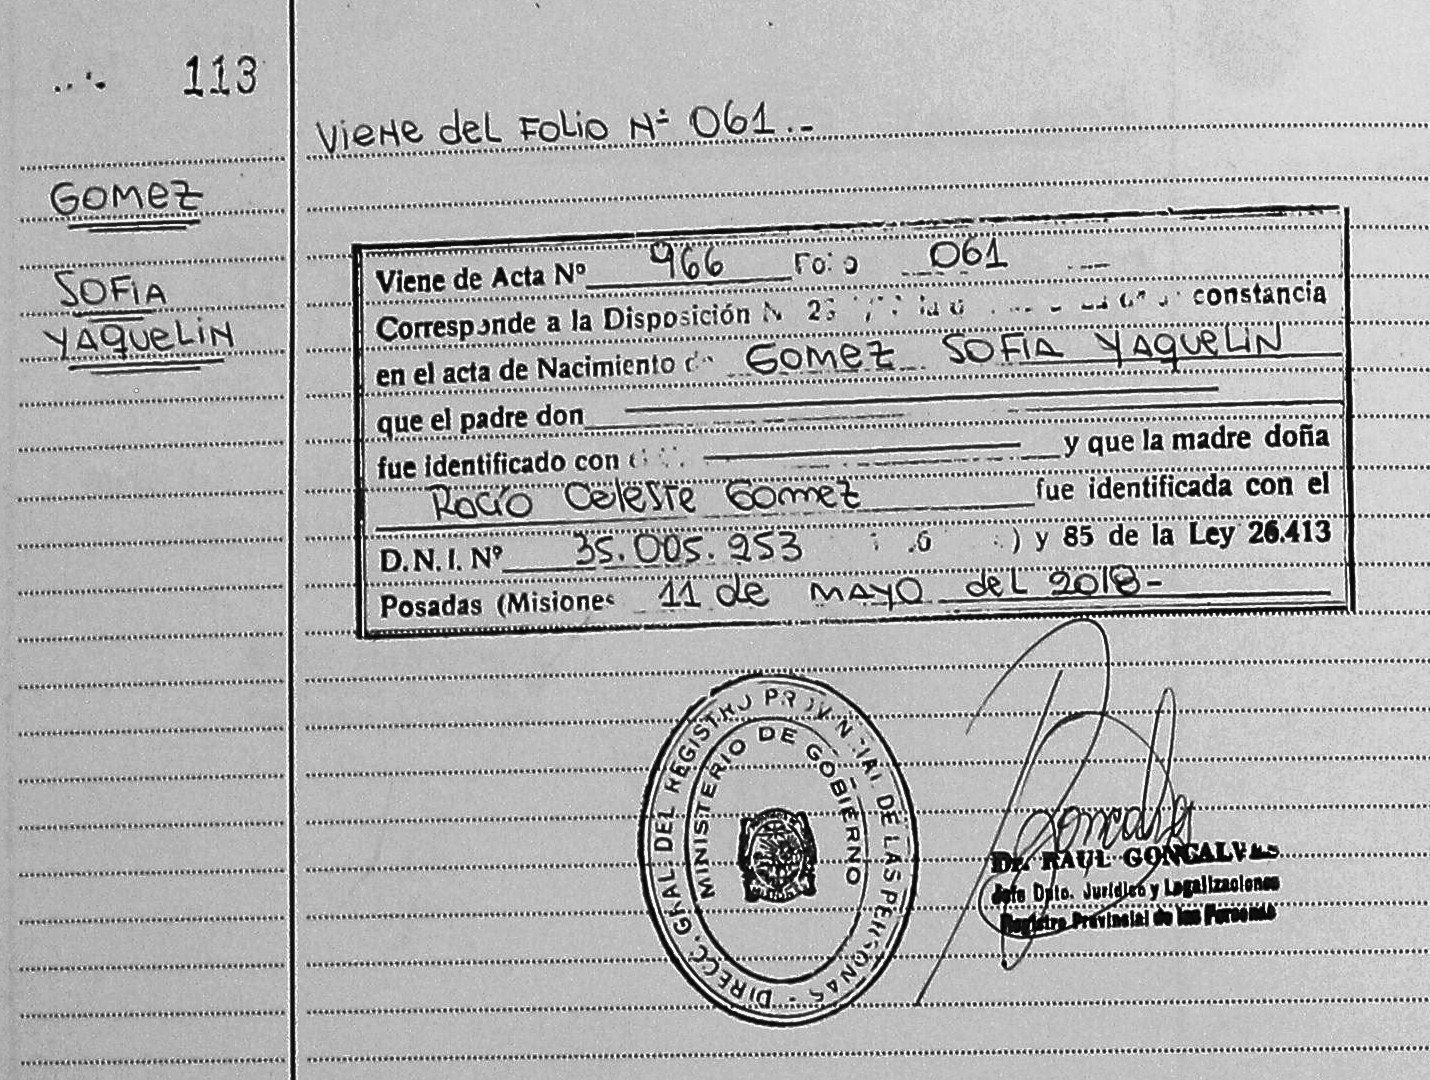 113
Viene del Folio Nº 061.-
GOMEZ
SOFIA
YAQUELIN
Viene de Acta Nº 966 Folio 061
Corresponde a la Disposición constancia
en el acta de Nacimiento GOMEZ SOFIA YAQUELIN
que el padre don
fue identificado con y que la madre doña
Rocío Celeste Gomez fue identificada con el
D.N.I. Nº 35.005.253 ) y 85 de la Ley 26.413
Posadas (Misiones 11 de MAYO del 2018-
DIRECC. GRAL. DEL REGISTRO PROVINCIAL DE LAS PERSONAS -
MINISTERIO DE GOBIERNO
Dr. RAUL GONCALVES
Jefe Dpto. Jurídico y Legalizaciones
Registro Provincial de las Personas